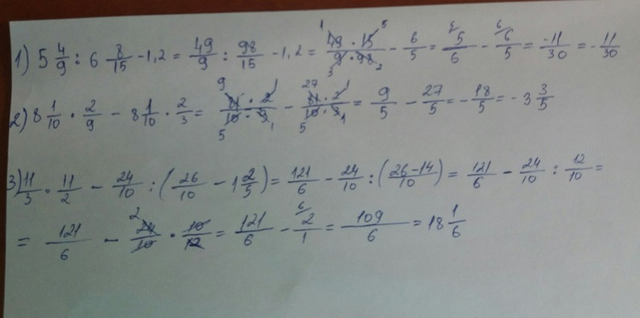 1) 5 4/9 : 6 8/15 - 1,2 = 49/9 : 98/15 - 1,2 = 49 · 15 / 9 · 98 - 6/5 = 5/6 - 6/5 = -11/30 = -11/30
2) 8 1/10 · 2/9 - 8 1/10 · 2/3 = 81 · 2 / 10 · 9 - 81 · 2 / 10 · 3 = 9/5 - 27/5 = -18/5 = -3 3/5
3) 11/3 · 11/2 - 24/10 : (26/10 - 1 2/5) = 121/6 - 24/10 : (26-14/10) = 121/6 - 24/10 : 12/10 =
= 121/6 - 24/10 · 10/12 = 121/6 - 2/1 = 109/6 = 18 1/6